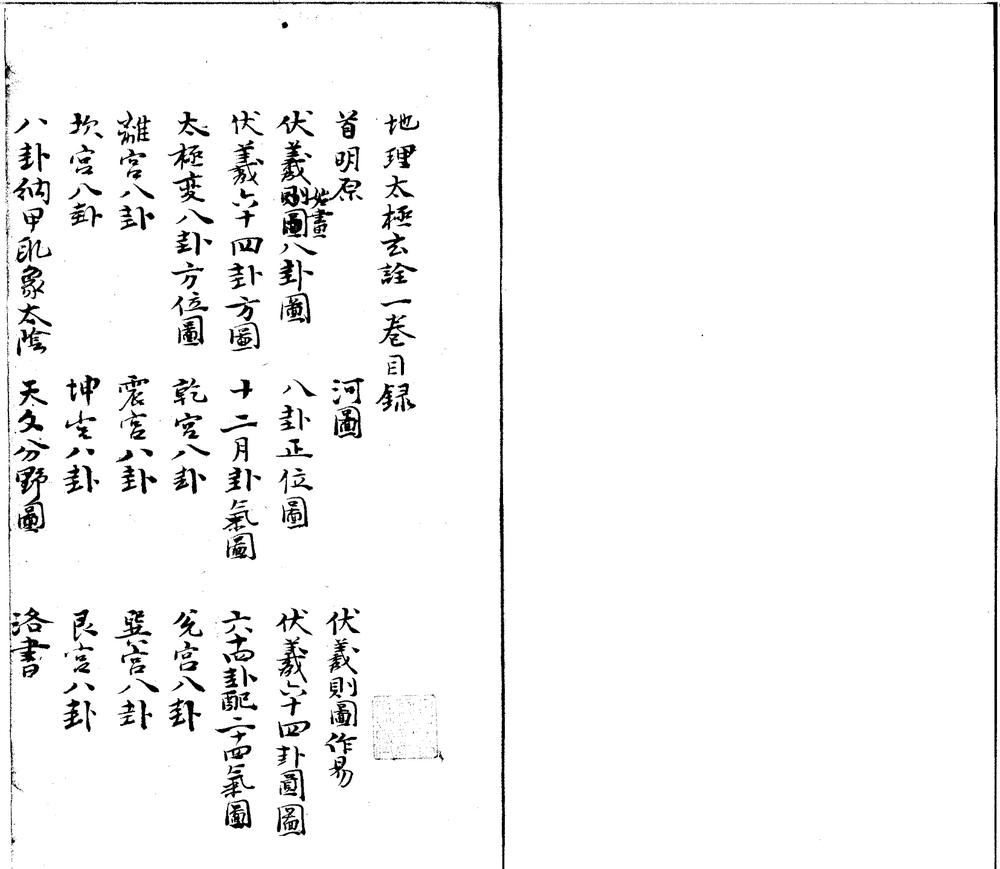 地理太極玄詮一巻目録
首明原 河圖 伏羲則圖作易
伏羲始畫八卦圖 八卦正位圖 伏羲六十四卦圓圖
伏羲六十四卦方圖 十二月卦氣圖 六十四卦配二十四氣圖
太極変八卦方位圖 乾宮八卦 兌宮八卦
離宮八卦 震宮八卦 巽宮八卦
坎宮八卦 坤宮八卦 艮宮八卦
八卦納甲取象太陰 天文分野圖 洛書